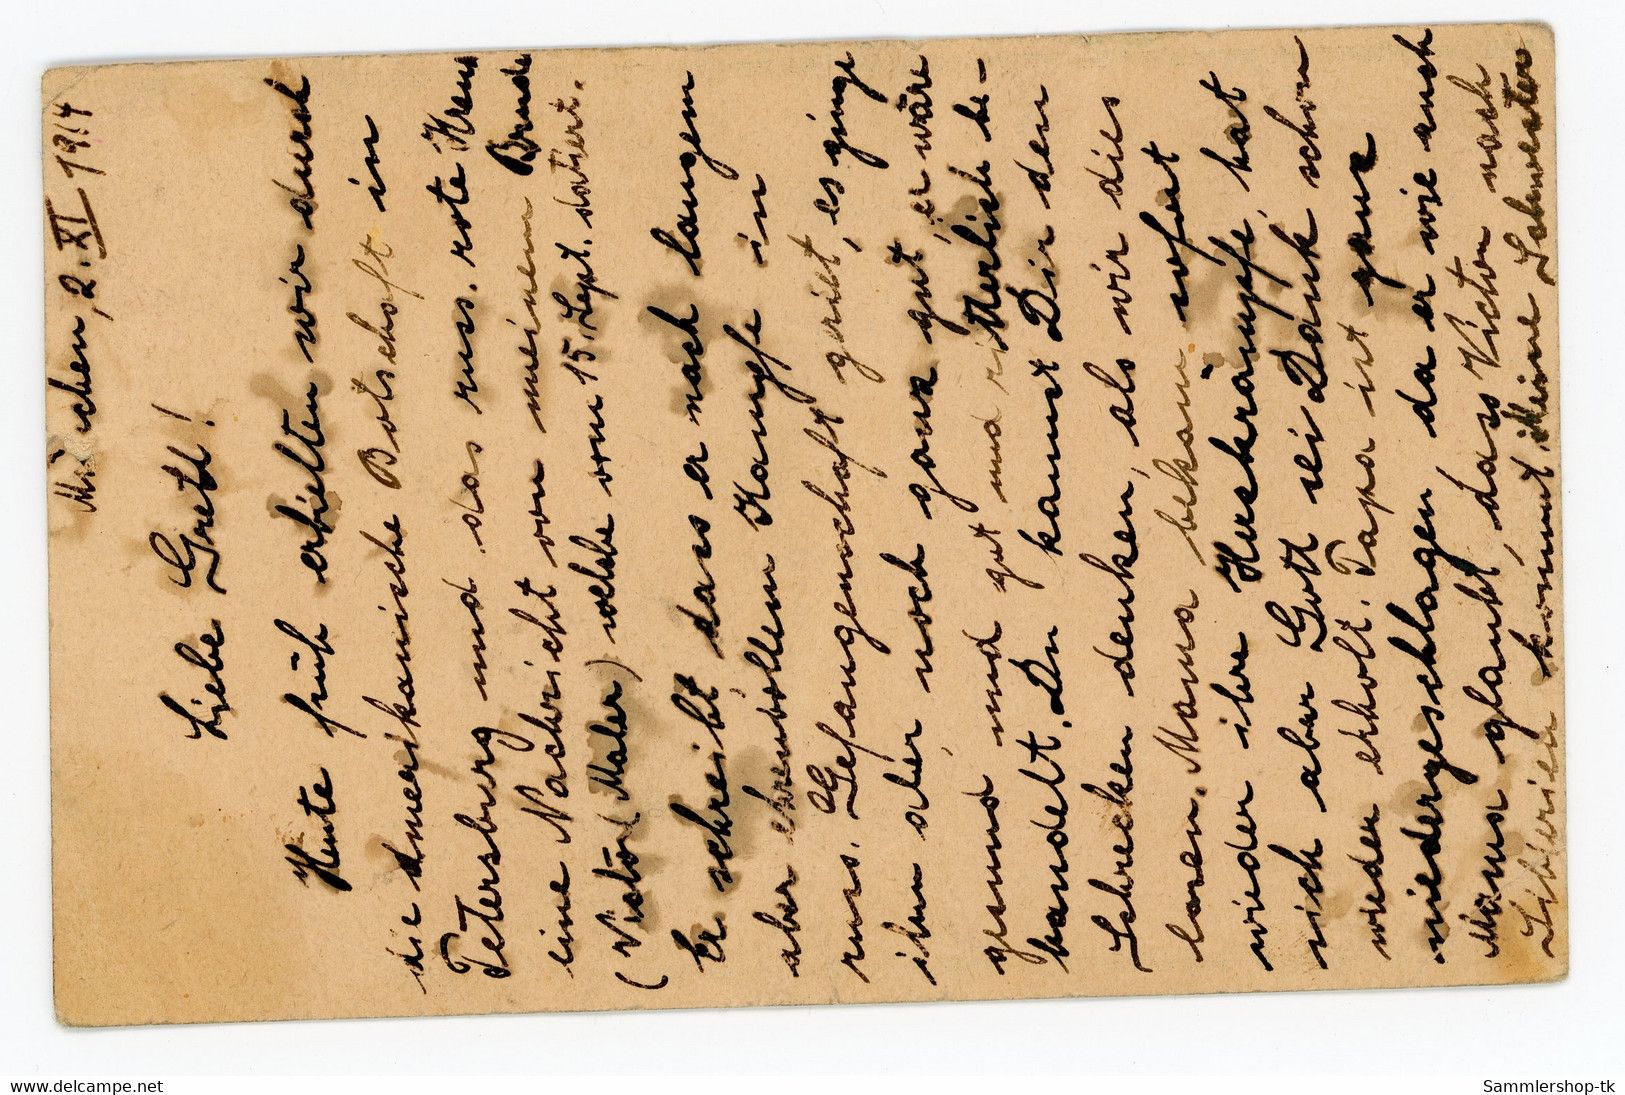 München, 2. XI 1914
Liebe Gretl!
Heute früh erhielten wir durch
die Amerikanische Botschaft in
Petersburg und das russ. rote Kreuz
eine Nachricht von meinem Bruder
(Victor Maler) welche vom 15. Sept. datiert.
Er schreibt, dass er nach langem
aber ehrenvollem Kampfe in
russ. Gefangenschaft geriet, es ginge
ihm aber noch ganz gut, er wäre
gesund und gut und ritterlich be-
handelt. Du kannst Dir den
Schrecken denken, als wir dies
lasen. Mama bekam sofort
wieder ihre Herzkrämpfe, hat
sich aber Gott sei Dank schon
wieder erholt. Papa ist ganz
niedergeschlagen, da er wie auch
Mama glaubt, dass Victor nach
Sibirien kommt. Meine Schwester
delcampe.net
Sammlershop-tk